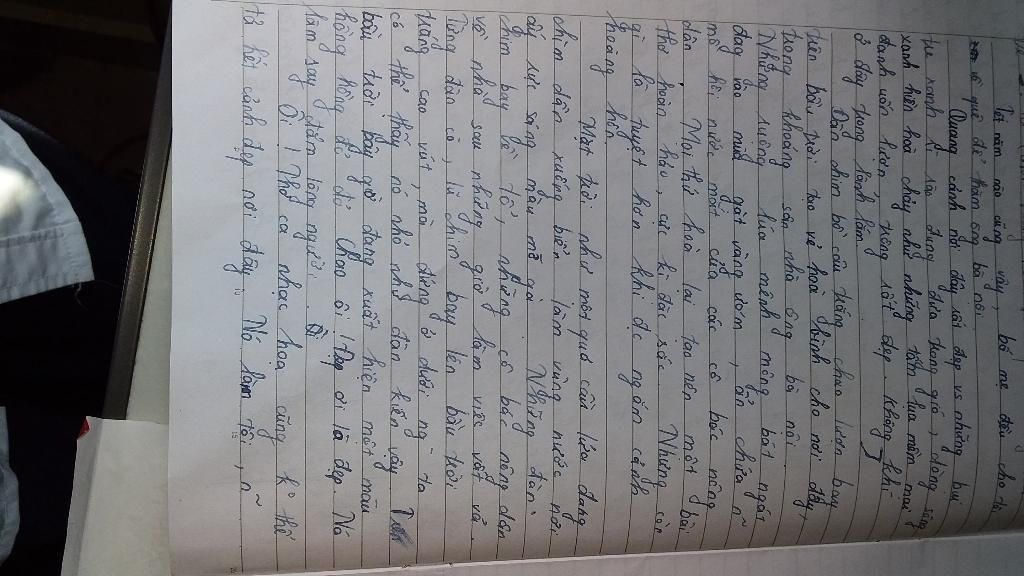 Tết năm nào cũng vậy, bố mẹ đều cho tôi
về quê để thăm ông bà nội.
Quang cảnh nơi đây rất đẹp vs những bụi
tre xanh kì lạ đung đưa trong gió, dòng sông
xanh hiền hòa chảy như những tấm lụa mềm mại
đanh uốn lượn, trông rất đẹp. Không khí
ở đây trong lành lắm.
Đàn chim bồ câu trắng chao lượn bay
trên bầu trời tỏa vẻ hoà bình cho nơi đây,
trong khoảng sân nhà ông bà nội.
Những ruộng lúa mênh mông bát ngát
đang vào mùa gặt vàng ươm, ẩn chứa n~
mồ hôi nước mắt của các cô bác nông
dân. Mọi thứ hoà lại tạo nên một bài
thơ hoàn hảo, cực kì đặc sắc. Nhưng còn
gì là tuyệt hơn khi đc ngắm cảnh
hoàng hôn.
Mặt trời như một quả cầu lửa đang
chìm dần xuống biển làm vùng nước nơi
ấy rực sáng màu mỡ gà. Những đàn
chim bay về tổ, những cô bác nông dân
về nhà sau những giờ làm việc vất vả.
Từng đàn cò, lũ chim bay lên bầu trời
trắng cao vút, mà đứng ở dưới ng~ ta
có thể thấy nó nhỏ như đàn kiến vậy.
bầu trời bây giờ đang xuất hiện một màu
hồng hồng đỏ đỏ. Chao ôi! Đẹp ơi là đẹp. Nó
làm say đắm lòng người.
Ôi! Thơ ca nhạc hoạ cũng k° thể
tả hết cảnh đẹp nơi đây. Nó làm tôi, n~